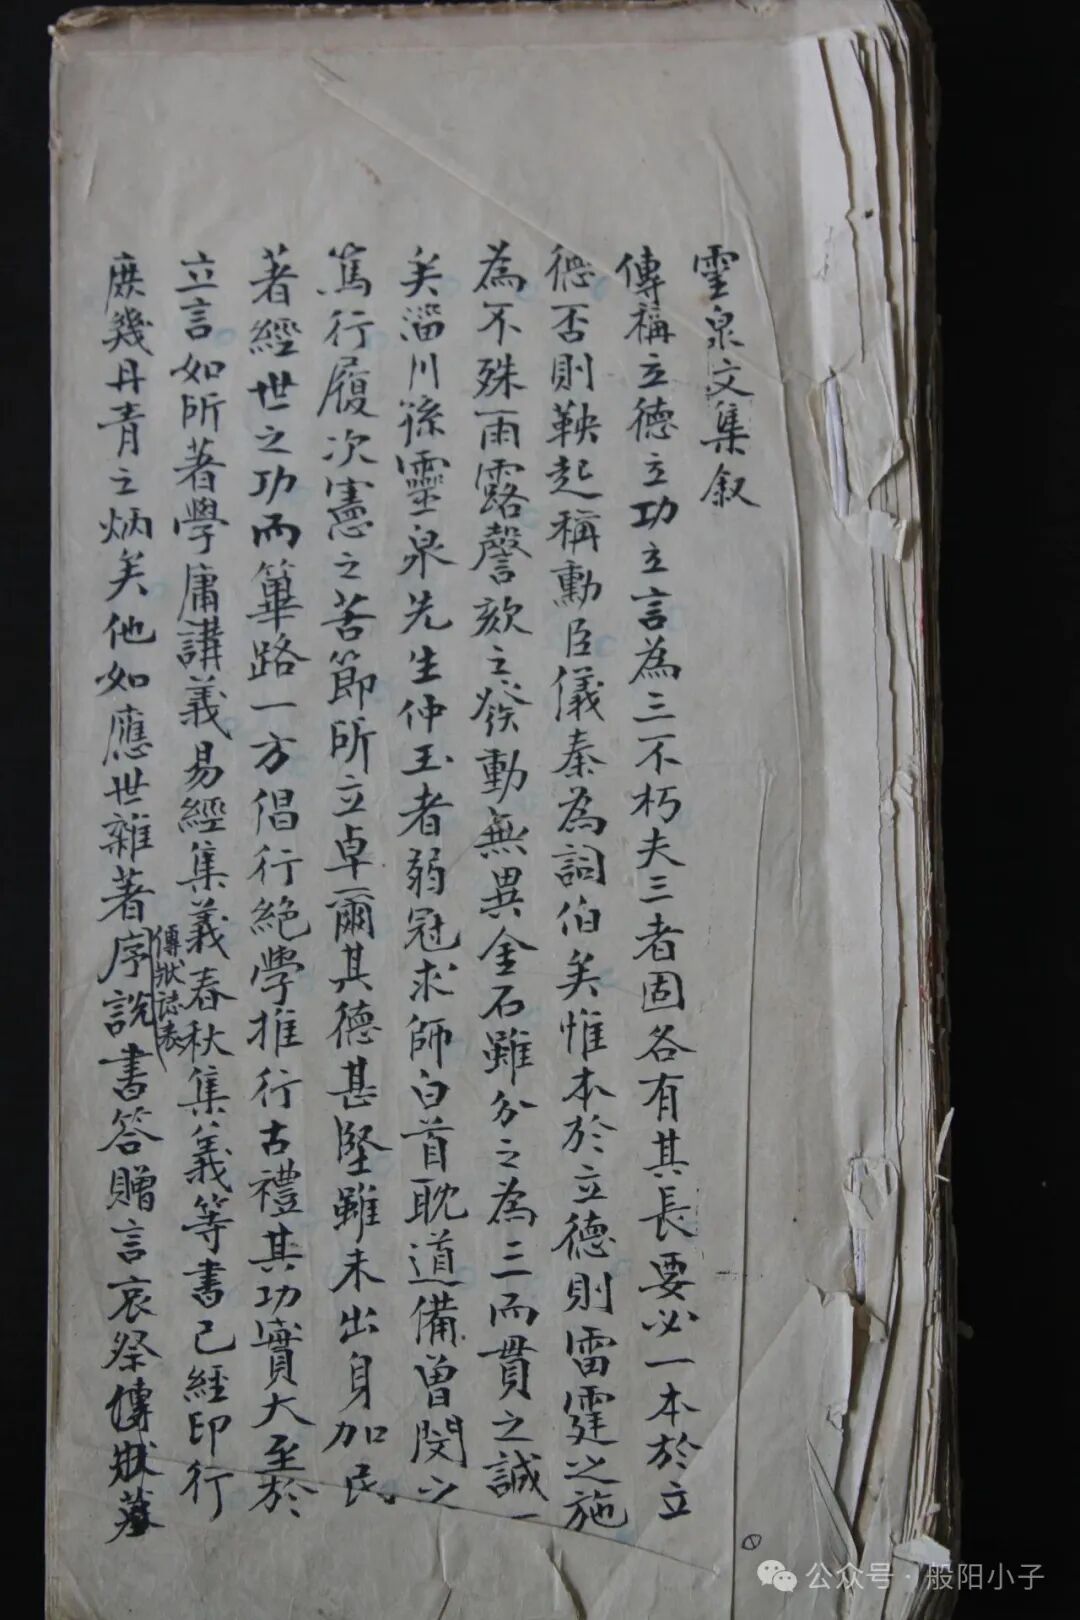 霊泉文集叙
傳稱立德立功立言為三不朽夫三者固各有其長要必一本於立
德否則鞅起稱勳臣儀秦為詞伯矣惟本於立德則雷霆之施
為不殊雨露謦欬之發動無異金石雖分之為三而貫之誠一
矣淄川孫靈泉先生仲玉者弱冠求師白首耽道備曾閔之
篤行履次憲之苦節所立卓爾其德甚堅雖未出身加民
著經世之功而篳路一方倡行絶學推行古禮其功實大至於
立言如所著學庸講義易經集義春秋集義等書已經印行
庶幾丹青之炳矣他如應世雜著序說書答贈言哀祭傳狀墓
傳狀誌表
公众号·般阳小子